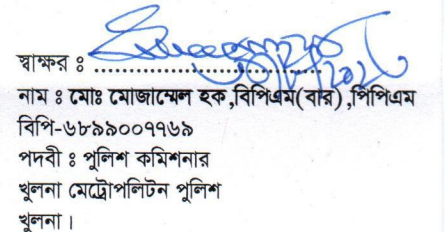 স্বাক্ষর ঃ ................................
নাম ঃ মোঃ মোজাম্মেল হক,বিপিএম(বার),পিপিএম
বিপি-৬৮৯৯০০৭৭৬৯
পদবী ঃ পুলিশ কমিশনার
খুলনা মেট্রোপলিটন পুলিশ
খুলনা।